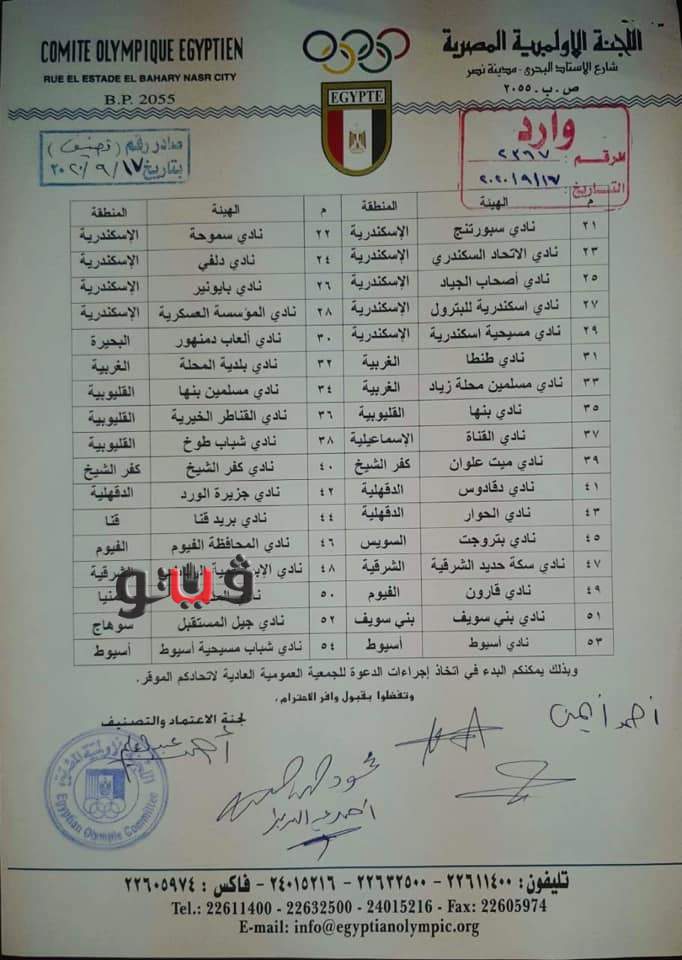 COMITE OLYMPIQUE EGYPTIEN
RUE EL ESTADE EL BAHARY NASR CITY
B.P. 2055
اللجنة الاولمبية المصرية
شارع الاستاد البحرى - مدينة نصر
ص . ب . ٢٠٥٥
EGYPTE
صادر رقم ( تصنيف )
بتاريخ ١٧ / ٩ / ٢٠٢٠
وارد
الرقم : ٢٣٦٧
التاريخ : ١٧ / ٩ / ٢٠٢٠
م الهيئة المنطقة م الهيئة المنطقة
٢١ نادي سبورتنج الإسكندرية ٢٢ نادي سموحة الإسكندرية
٢٣ نادي الاتحاد السكندري الإسكندرية ٢٤ نادي دلفي الإسكندرية
٢٥ نادي أصحاب الجياد الإسكندرية ٢٦ نادي بايونير الإسكندرية
٢٧ نادي اسكندرية للبترول الإسكندرية ٢٨ نادي المؤسسة العسكرية الإسكندرية
٢٩ نادي مسيحية اسكندرية الإسكندرية ٣٠ نادي ألعاب دمنهور البحيرة
٣١ نادي طنطا الغربية ٣٢ نادي بلدية المحلة الغربية
٣٣ نادي مسلمين محلة زياد الغربية ٣٤ نادي مسلمين بنها القليوبية
٣٥ نادي بنها القليوبية ٣٦ نادي القناطر الخيرية القليوبية
٣٧ نادي القناة الاسماعيلية ٣٨ نادي شباب طوخ القليوبية
٣٩ نادي ميت علوان كفر الشيخ ٤٠ نادي كفر الشيخ كفر الشيخ
٤١ نادي دقادوس الدقهلية ٤٢ نادي جزيرة الورد الدقهلية
٤٣ نادي الحوار الدقهلية ٤٤ نادي بريد قنا قنا
٤٥ نادي بتروجت السويس ٤٦ نادي المحافظة الفيوم الفيوم
٤٧ نادي سكة حديد الشرقية الشرقية ٤٨ نادي الشرقية
٤٩ نادي قارون الفيوم ٥٠ نادي
٥١ نادي بني سويف بني سويف ٥٢ نادي جيل المستقبل سوهاج
٥٣ نادي أسيوط أسيوط ٥٤ نادي شباب مسيحية أسيوط أسيوط
ڤيتو
وبذلك يمكنكم البدء في اتخاذ إجراءات الدعوة للجمعية العمومية العادية لاتحادكم الموقر.
وتفضلوا بقبول وافر الاحترام،
لجنة الاعتماد والتصنيف
أحمد أيمن
Egyptian Olympic Committee
تليفون : ٢٢٦١١٤٠٠ - ٢٢٦٣٢٥٠٠ - ٢٤٠١٥٢١٦ - فاكس : ٢٢٦٠٥٩٧٤
Tel.: 22611400 - 22632500 - 24015216 - Fax: 22605974
E-mail: info@egyptianolympic.org